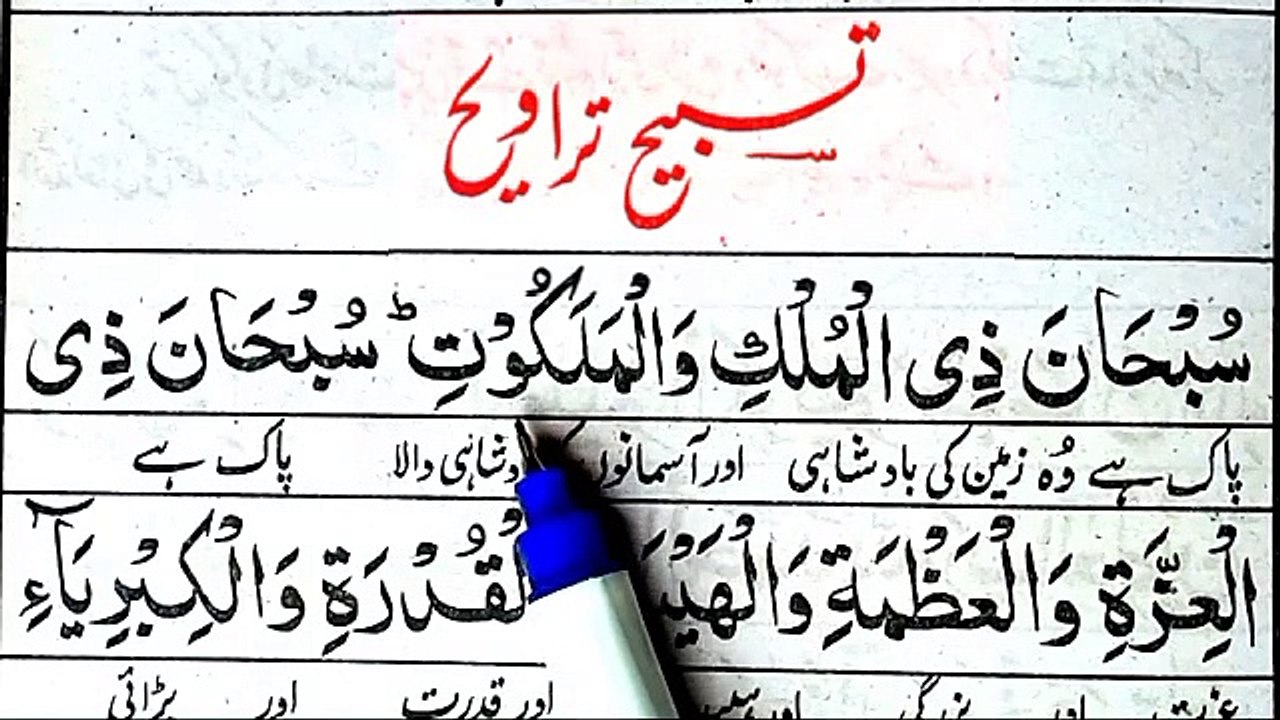 تسبیح تراویح
سُبْحَانَ ذِی الْمُلْكِ وَالْمَلَكُوْتِ ؕ سُبْحَانَ ذِی
پاک ہے وُہ زمین کی بادشاہی اور آسمانوں والا پاک ہے
الْعِزَّةِ وَالْعَظْمَةِ وَالْقُدْرَةِ وَالْكِبْرِيَآءِ
بزرگی اور قدرت اور بڑائی